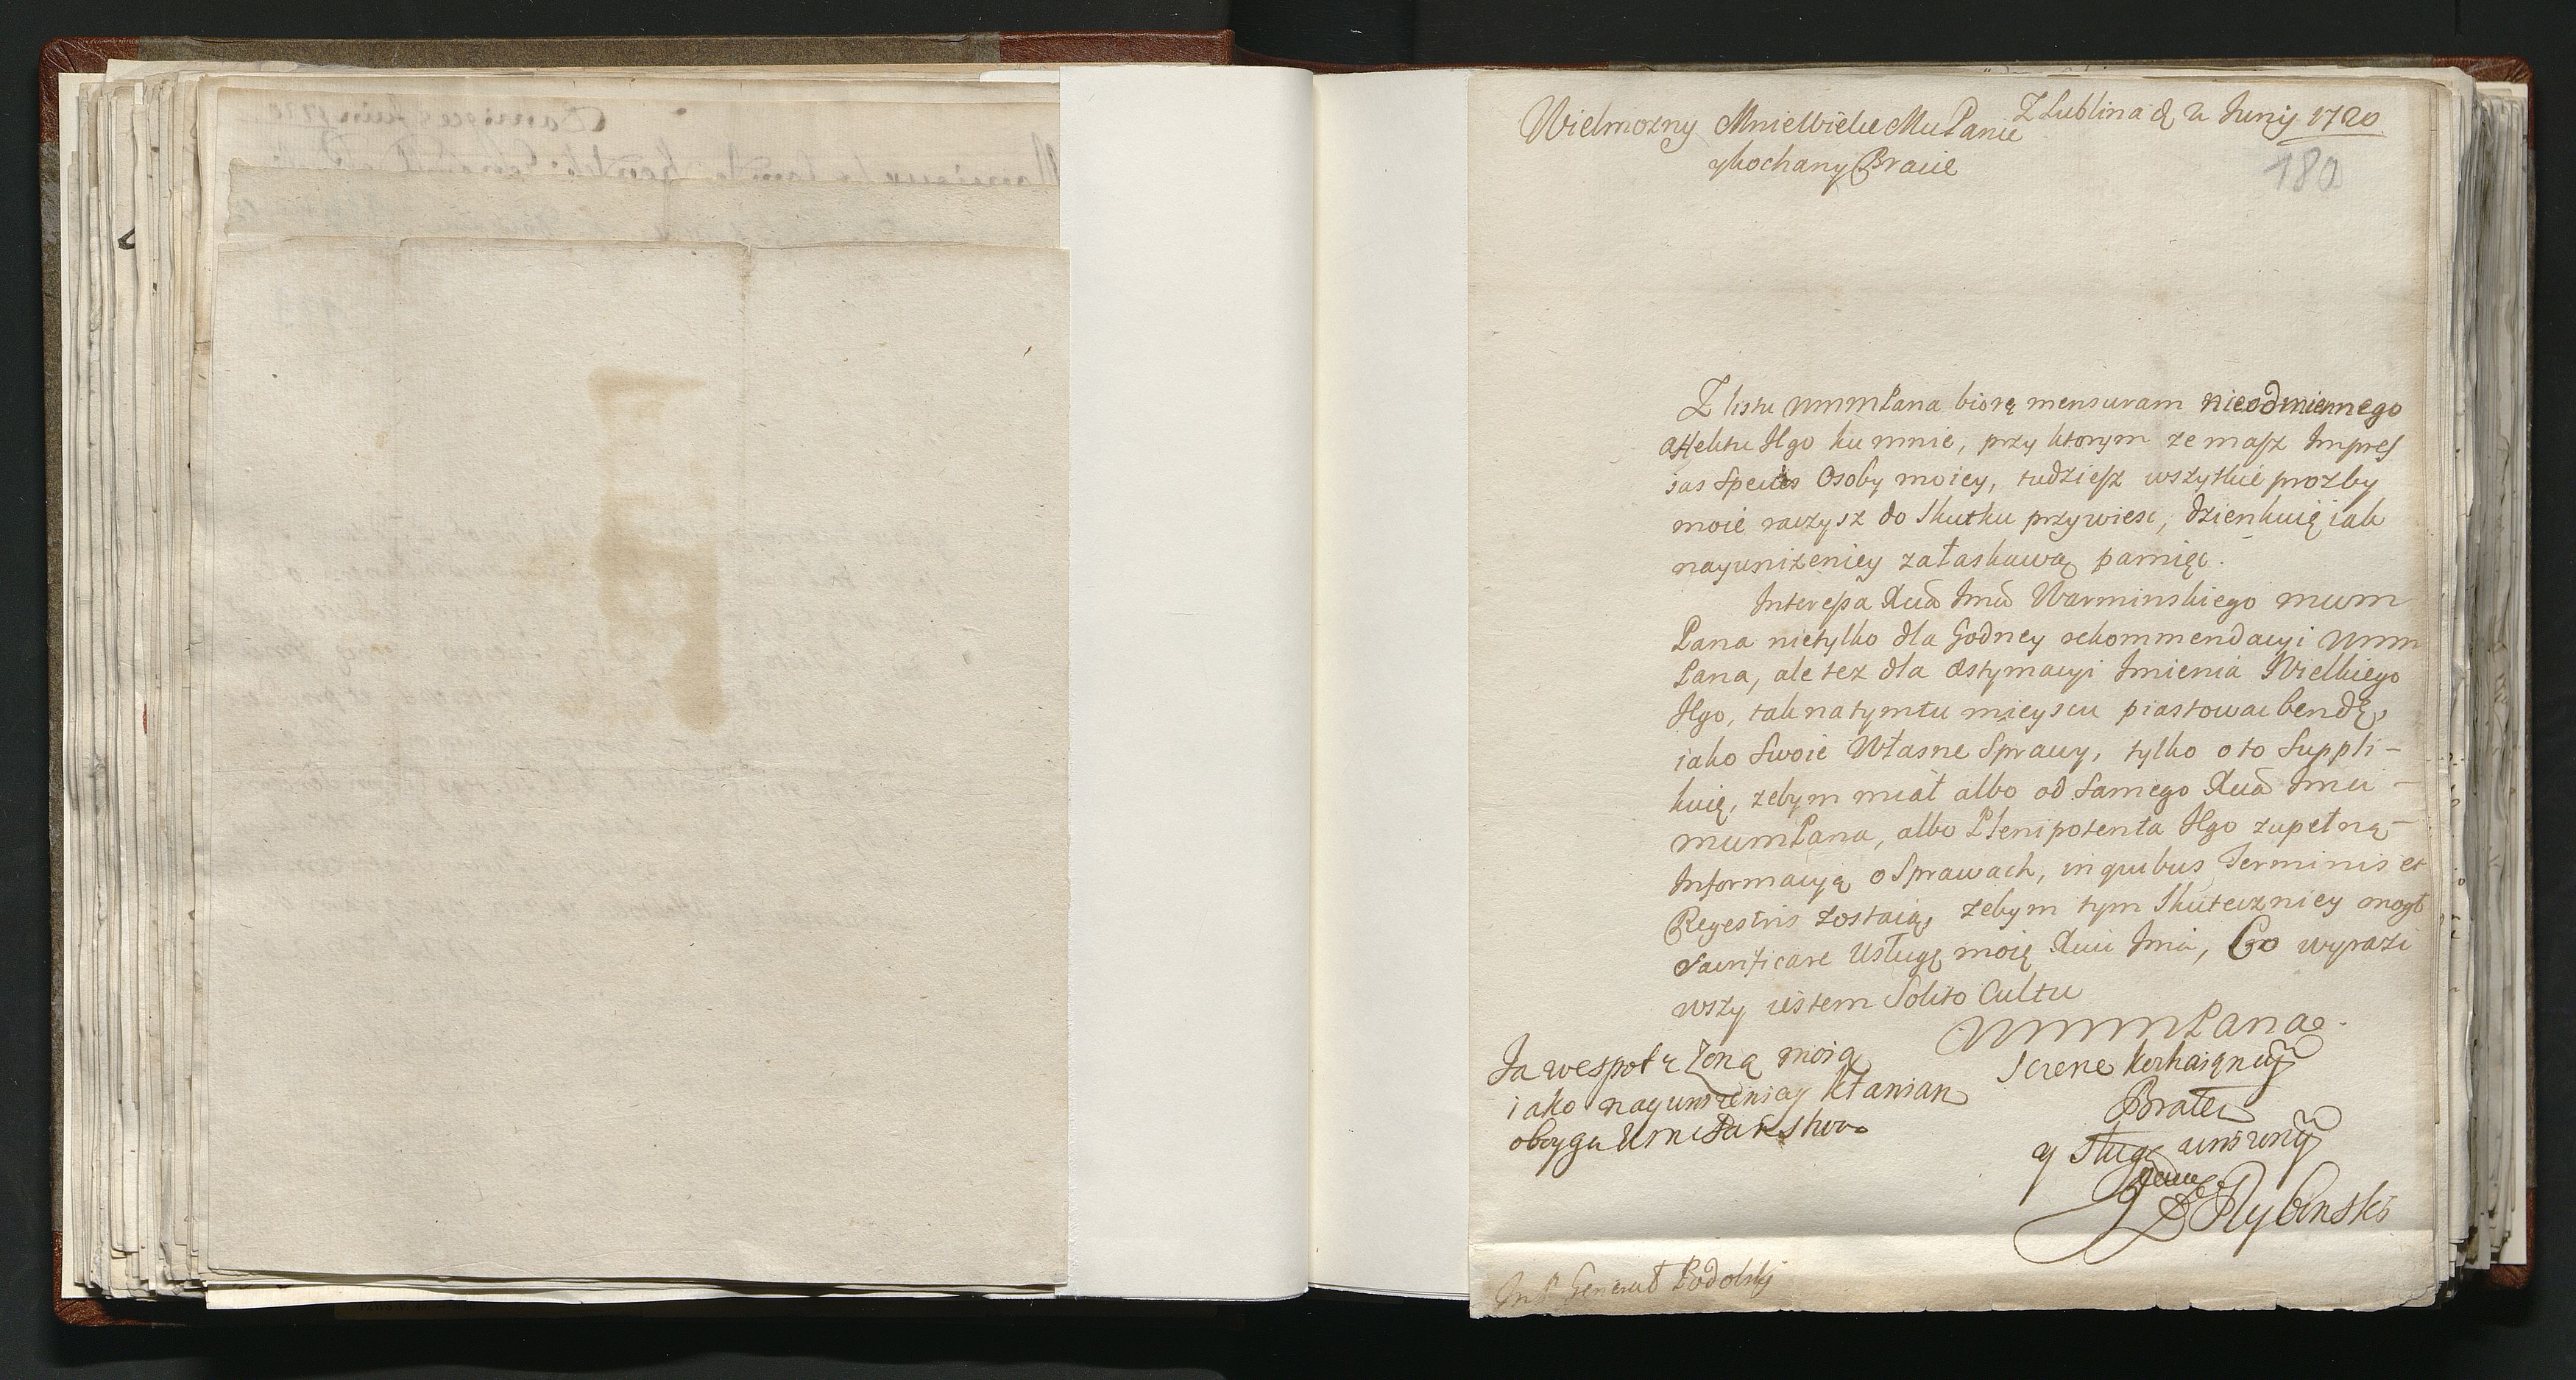 Z Lublina d. 2 Junij 1720
Wielmozny Mnie Wielce Mu Panie
y kochany Bracie
180
Z listu WMMPana biorę mensuram nieodmiennego
affektu Ilgo ku mnie, przy ktorym ze masz Impres
sas Species Osoby moiey, tudziesz wszytkie prozby
moie raczysz do skutku przywiesc, dzienkuię iak
nayunizeniey za łaskawą pamięc.
Interessa Xcia Imci Warminskiego mum
Pana nietylko dla Godney rekommendacyi WMM
Pana, ale tez dla Estymacyi Imienia Wielkiego
Ilgo, tak na tym tu mieyscu piastowac bendę,
iako Swoie Własne Sprawy, tylko o to Suppli-
kuię, zebym miał albo od Samego Xcia Imci -
mumPana, albo Plenipotenta Ilgo zupełną -
Informacyą o Sprawach, in quibus Terminis et
Regestris zostaią, zebym tym Skuteczniey mogł
Sacrificare Usługę moię Xciu Imci, Co wyrazi
wszy iestem Solito Cultu
WMMMPana.
Screne kochaiącym
Bratem
y Sługą unizonym
Rybinski
Ja wespoł z Zoną moią
iako nayunizeniey kłaniam
oboyga Pan stwo
Generał Podolskj